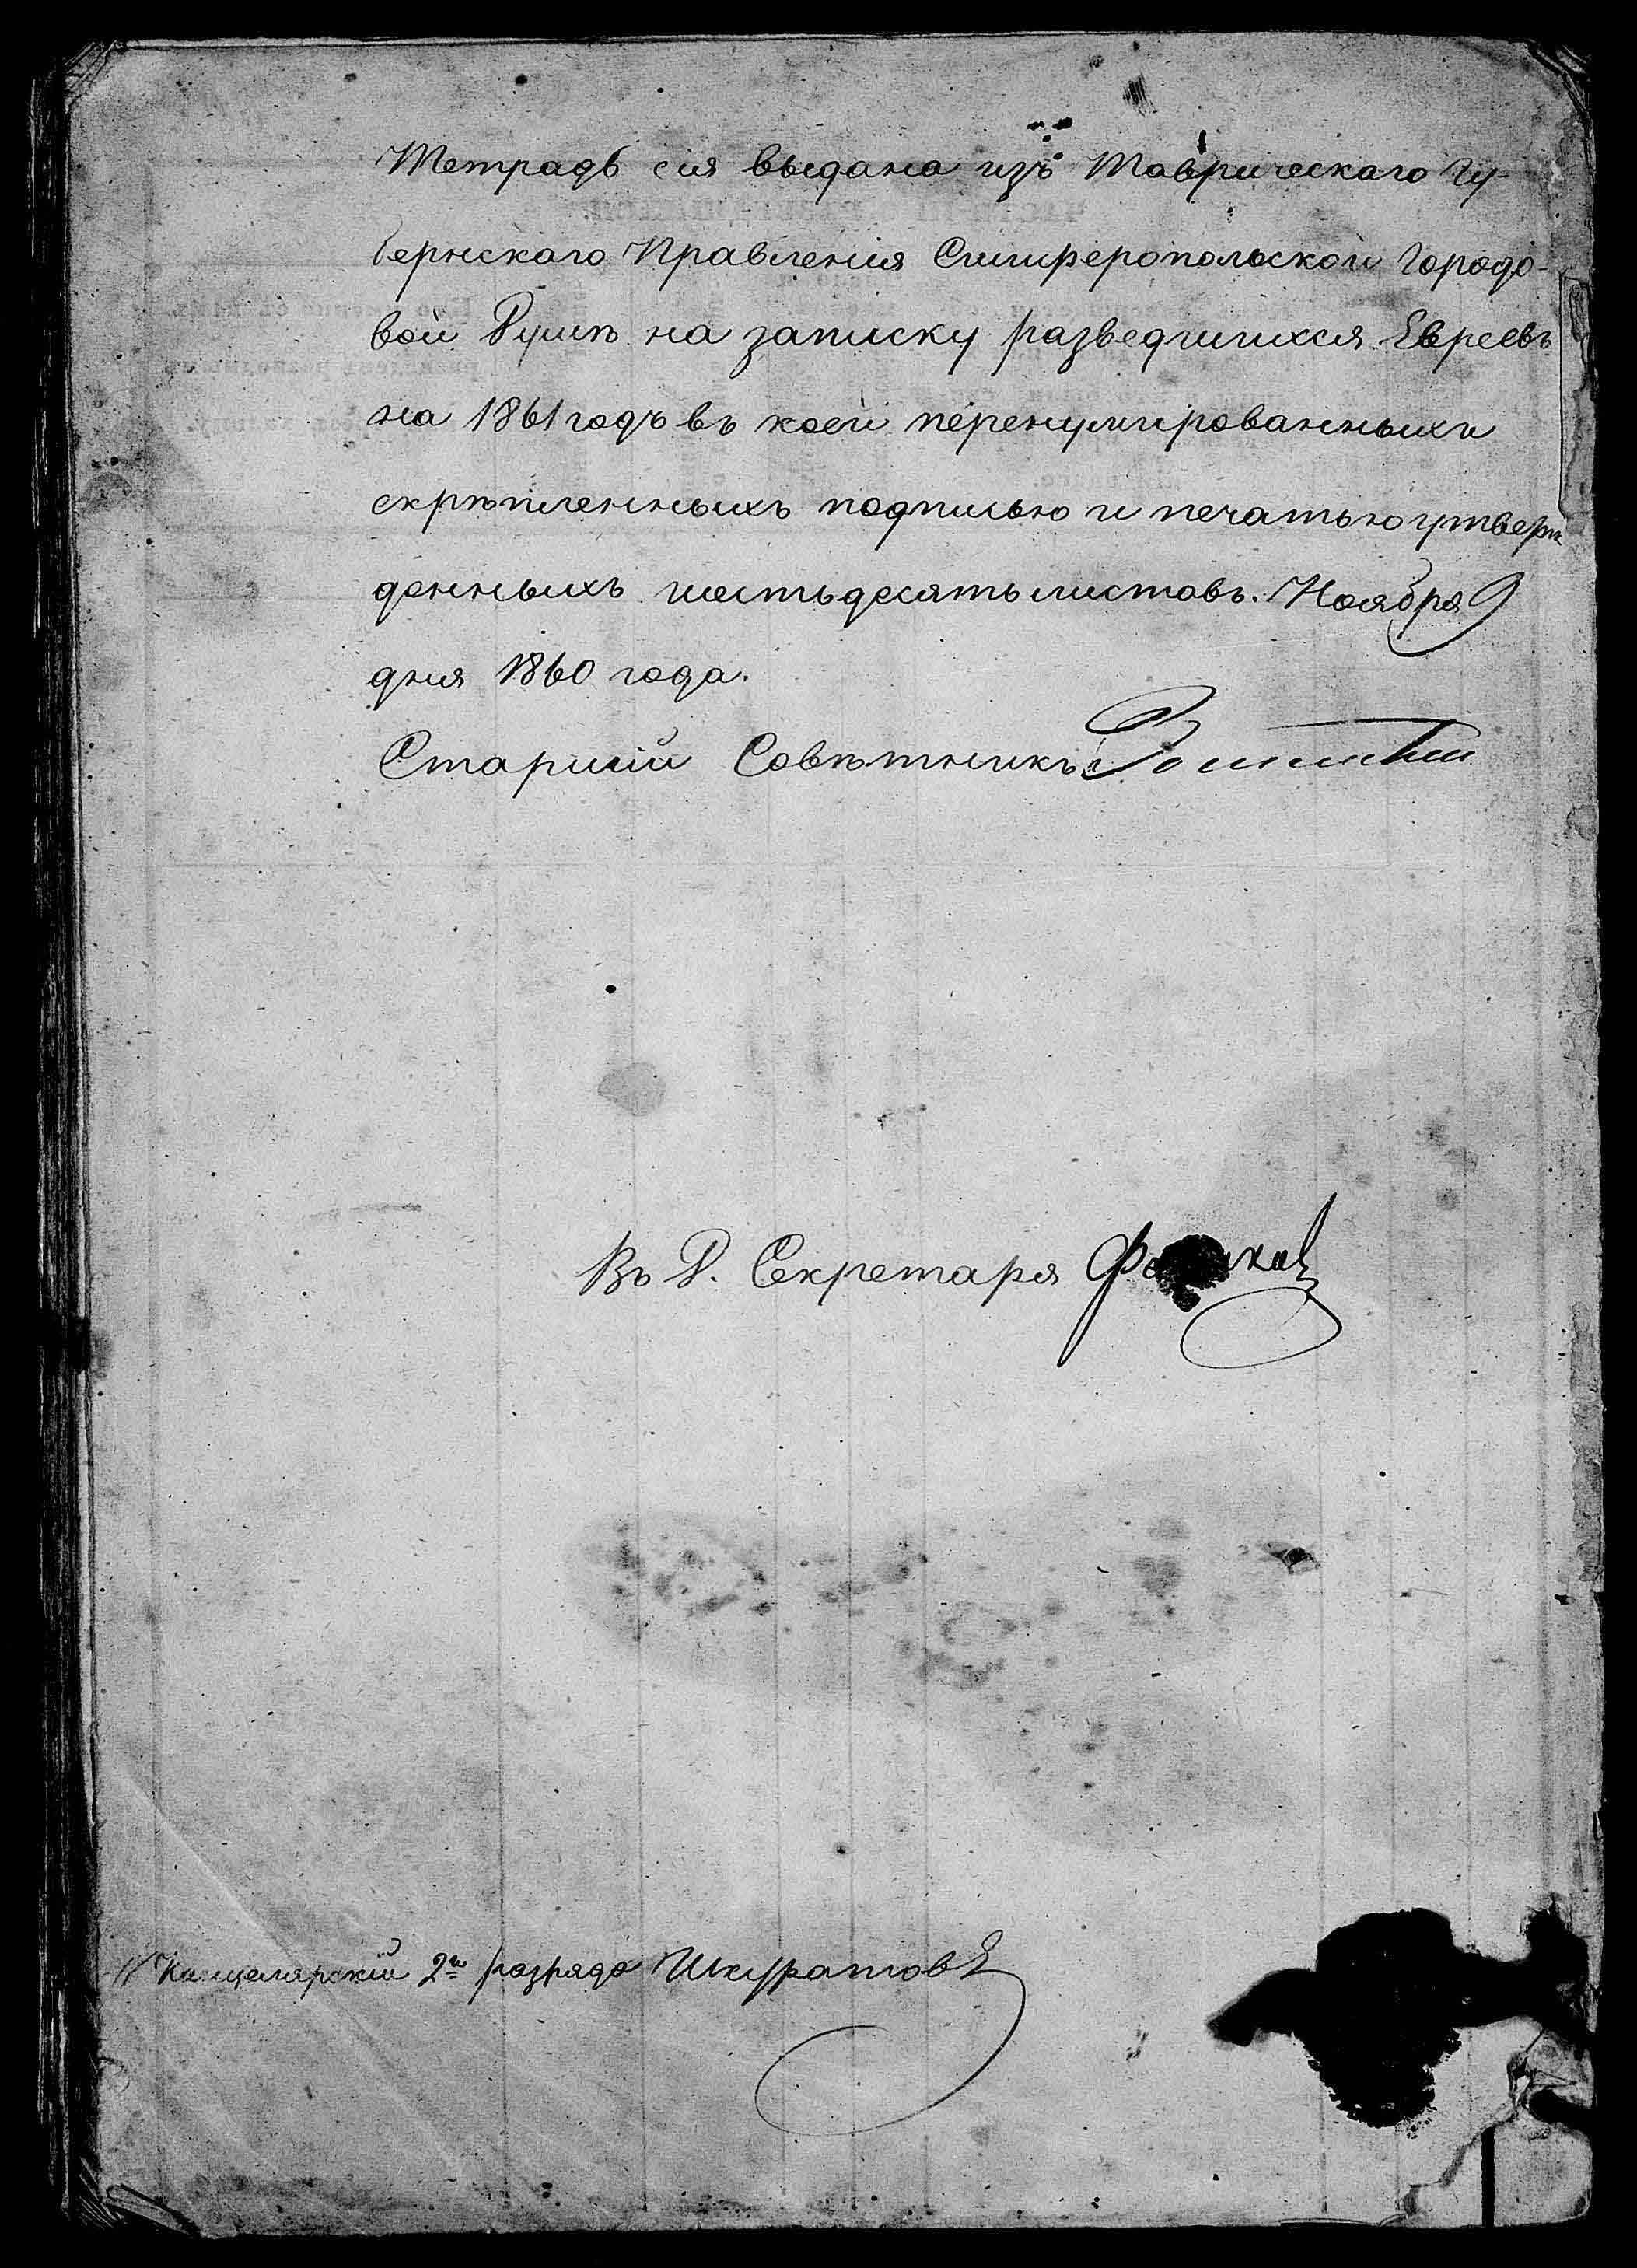 Тетрадь сія выдана изъ Таврическаго Гу-
бернскаго Правленія Симферопольской Городо-
вой Думѣ на записку разведшихся Евреевъ
на 1861 годъ въ коей перенумированныхъ
скрѣпленныхъ подписью и печатью утверж
денныхъ шестьдесятъ листовъ. Ноября 9
дня 1860 года.
Старшій Совѣтникъ
Въ Д. Секретаря
Канцелярскій 2го разряда Шкуратовъ